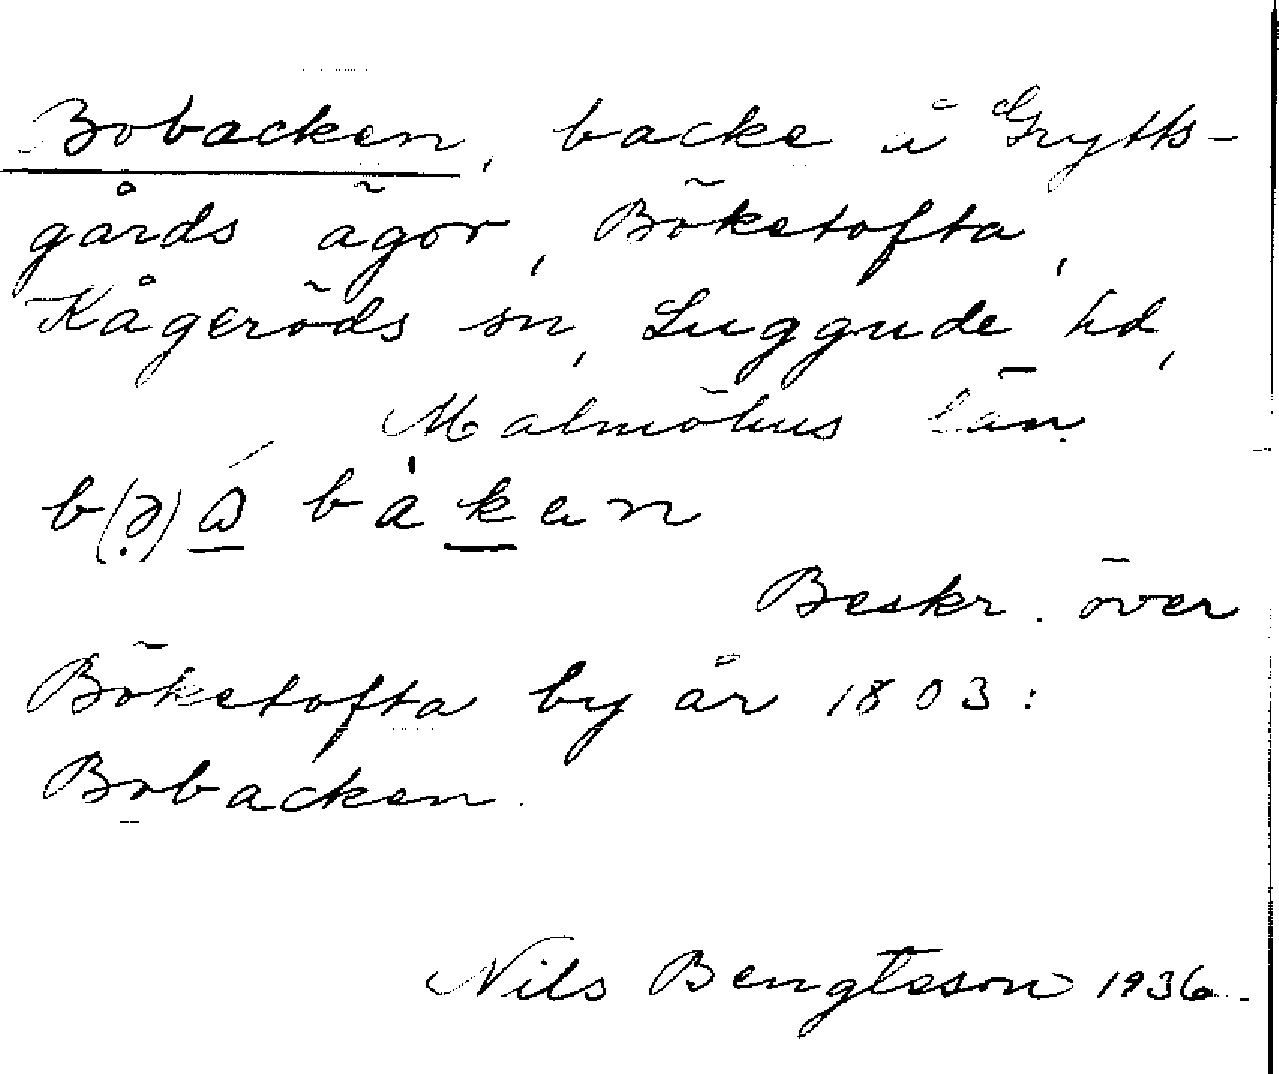 Bobacken, backe å Grytts-
gårds ägor, Böketofta,
Kågeröds sn, Luggude hd,
Malmöhus län.
b(ə̣)å bàkan
Beskr. över
Böketofta by år 1803:
Bobacken.
Nils Bengtsson 1936.